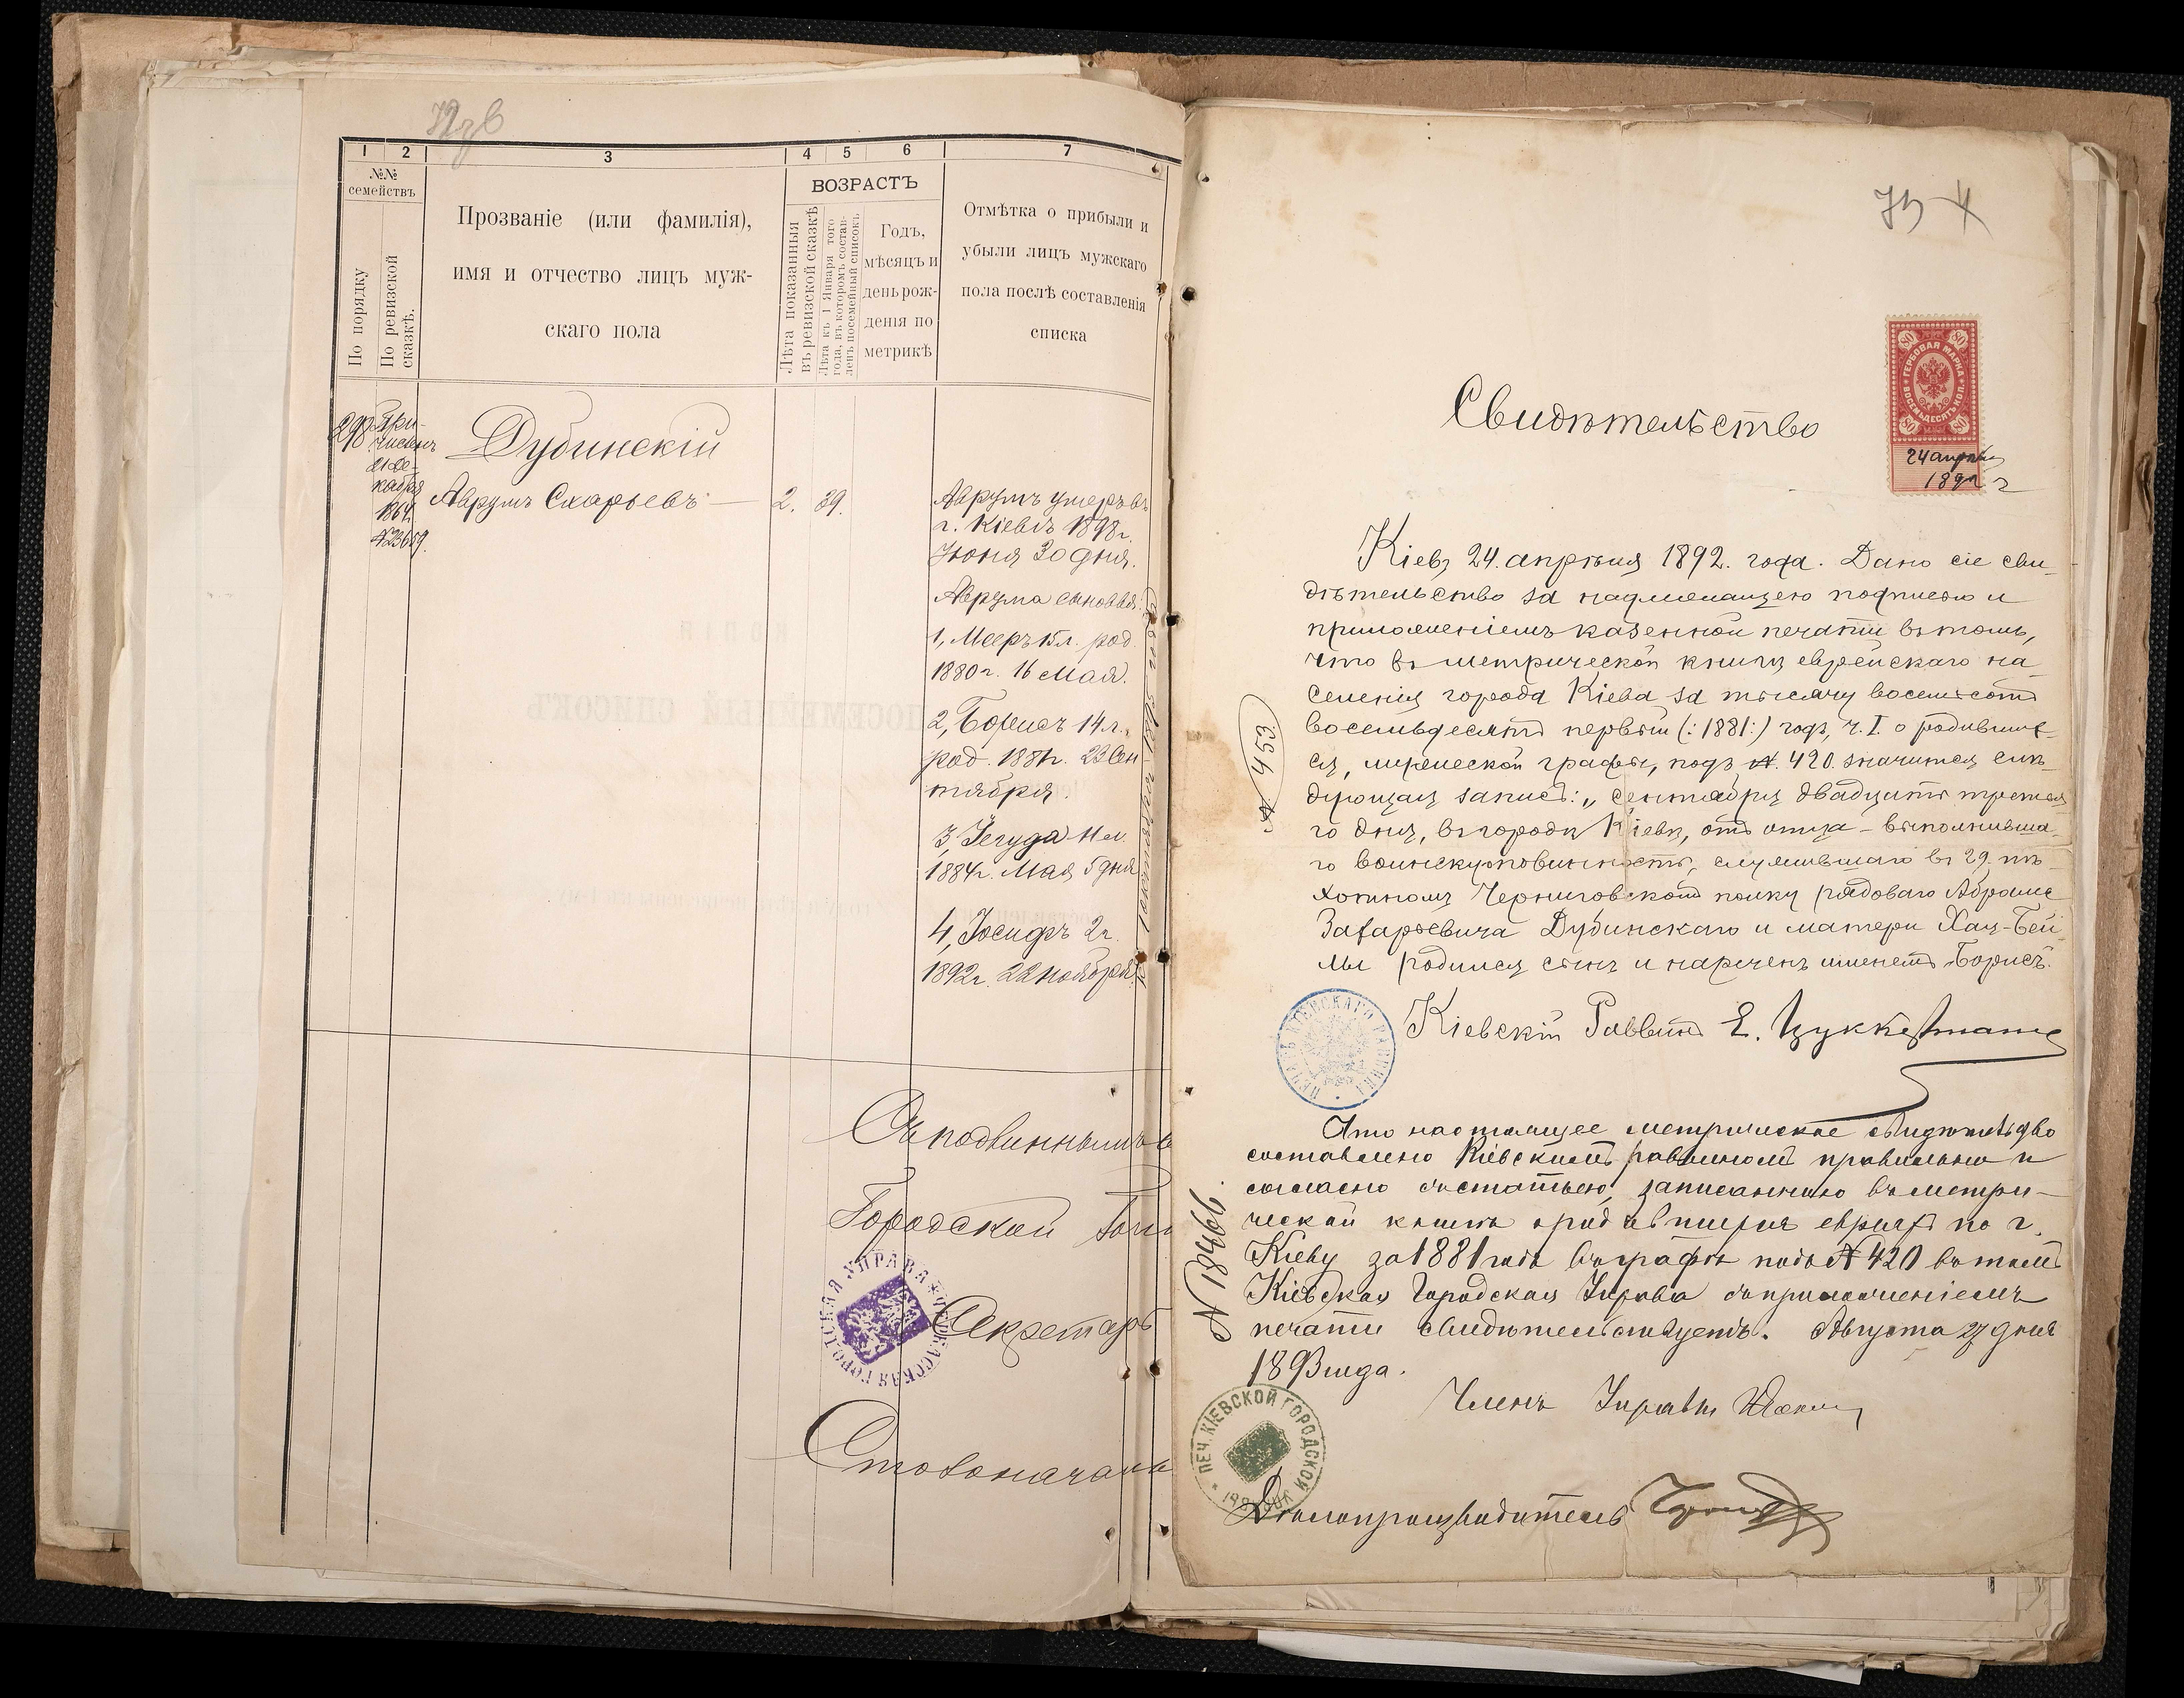 1
2
3
4
5
6
7
№№
семействъ
По порядку
По ревизской
сказкѣ.
Прозваніе (или фамилія),
имя и отчество лицъ муж-
скаго пола
ВОЗРАСТЪ
Лѣта показанныя
въ ревизской сказкѣ
Лѣта къ 1 Января того
года, въ которомъ состав-
ленъ посемейный списокъ
Годъ,
мѣсяцъ и
день рож-
денія по
метрикѣ
Отмѣтка о прибыли и
убыли лицъ мужскаго
пола послѣ составленія
списка
298
При-
численъ
21 Де-
кабря
1864
№23659.
Дубинскій
Аврумъ Схарьевъ — 2. 39.
Аврумъ умеръ въ
г. Кіевѣ 1898 г.
Іюня 30 дня.
Аврума сыновья:
1, Мееръ 15 л. род.
1880 г. 16 Мая.
2, Борисъ 14 л.,
род. 1881 г. 23 Сен
тября.
3, Іегуда 11 л.
1884 г. Мая 5 дня
4, Іосифъ 2 г.
1892 г. 22 ноября
Съ подлиннымъ
Городской
Секретарь
Столоначаль
Свидѣтельство
ГЕРБОВАЯ МАРКА
ВОСЕМЬДЕСЯТЪ КОП.
80 80
80 80
24 апрѣля
1892 г
Кіевъ 24 апрѣля 1892. года. Дано сіе сви-
дѣтельство за надлежащею подписью и
приложеніемъ казенной печати въ томъ,
что въ метрической книгѣ еврейскаго на-
селенія города Кіева за тысячу восемьсотъ
восемьдесятъ первый (:1881:) годъ, ч. I. о родивших-
ся, мужеской графы, подъ №. 420 значится слѣ-
дующая запись: „Сентября двадцать третья-
го дня, въ городѣ Кіевѣ, отъ отца – выполнивша-
го воинскую повинность, служившаго въ 29. пѣ-
хотномъ Черниговскомъ полку рядоваго Абрама
Захарьевича Дубинскаго и матери Хаи-Бей-
лы родился сынъ и нареченъ именемъ Борисъ.
№ 453
Кіевскій Раввинъ Е. Цуккерманъ
Что настоящее метрическое свидѣтельство
составлено Кіевскимъ раввиномъ правильно и
согласно съ статьею, записанною въ метри-
ческой книгѣ о родившихся евреяхъ по г.
Кіеву за 1881 годъ въ графѣ подъ № 420 въ томъ
Кіевская Городская Управа съ приложеніемъ
печати свидѣтельствуетъ. Августа 27 дня
1893 года.
№ 18466.
Членъ Управы
ПЕЧ. КІЕВСКОЙ ГОРОДСКОЙ
Дѣлопроизводитель